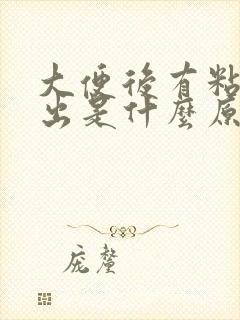 大便後有粘
出是什麼原
庞釐